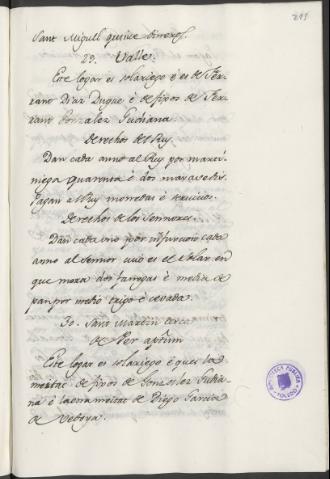 Sant Miguell quince dineros.
29. Valle.
Este logar es solariego é es de Fer-
rant Diaz Duque é de fijos de Fer-
rant Gonzalez Gudiana
Derechos del Rey.
Dan cada anno al Rey por marti-
niega quarenta é dos maravedis.
Pagan al Rey monedas é servicios.
Derechos de los Sennores.
Dan cada uno por infurcion cada
anno al Sennor cuio es el solar en
que mora dos fanegas é media de
pan por medio trigo é cevada.
30. Sant Martin cerca
de Per
Este logar es solariego é que es la
meitat de fijos de Gonzalez Gudia-
na é la otra meitat de Diego Garcia
de Vedoya.
BIBLIOTECA PUBLICA
TOLEDO